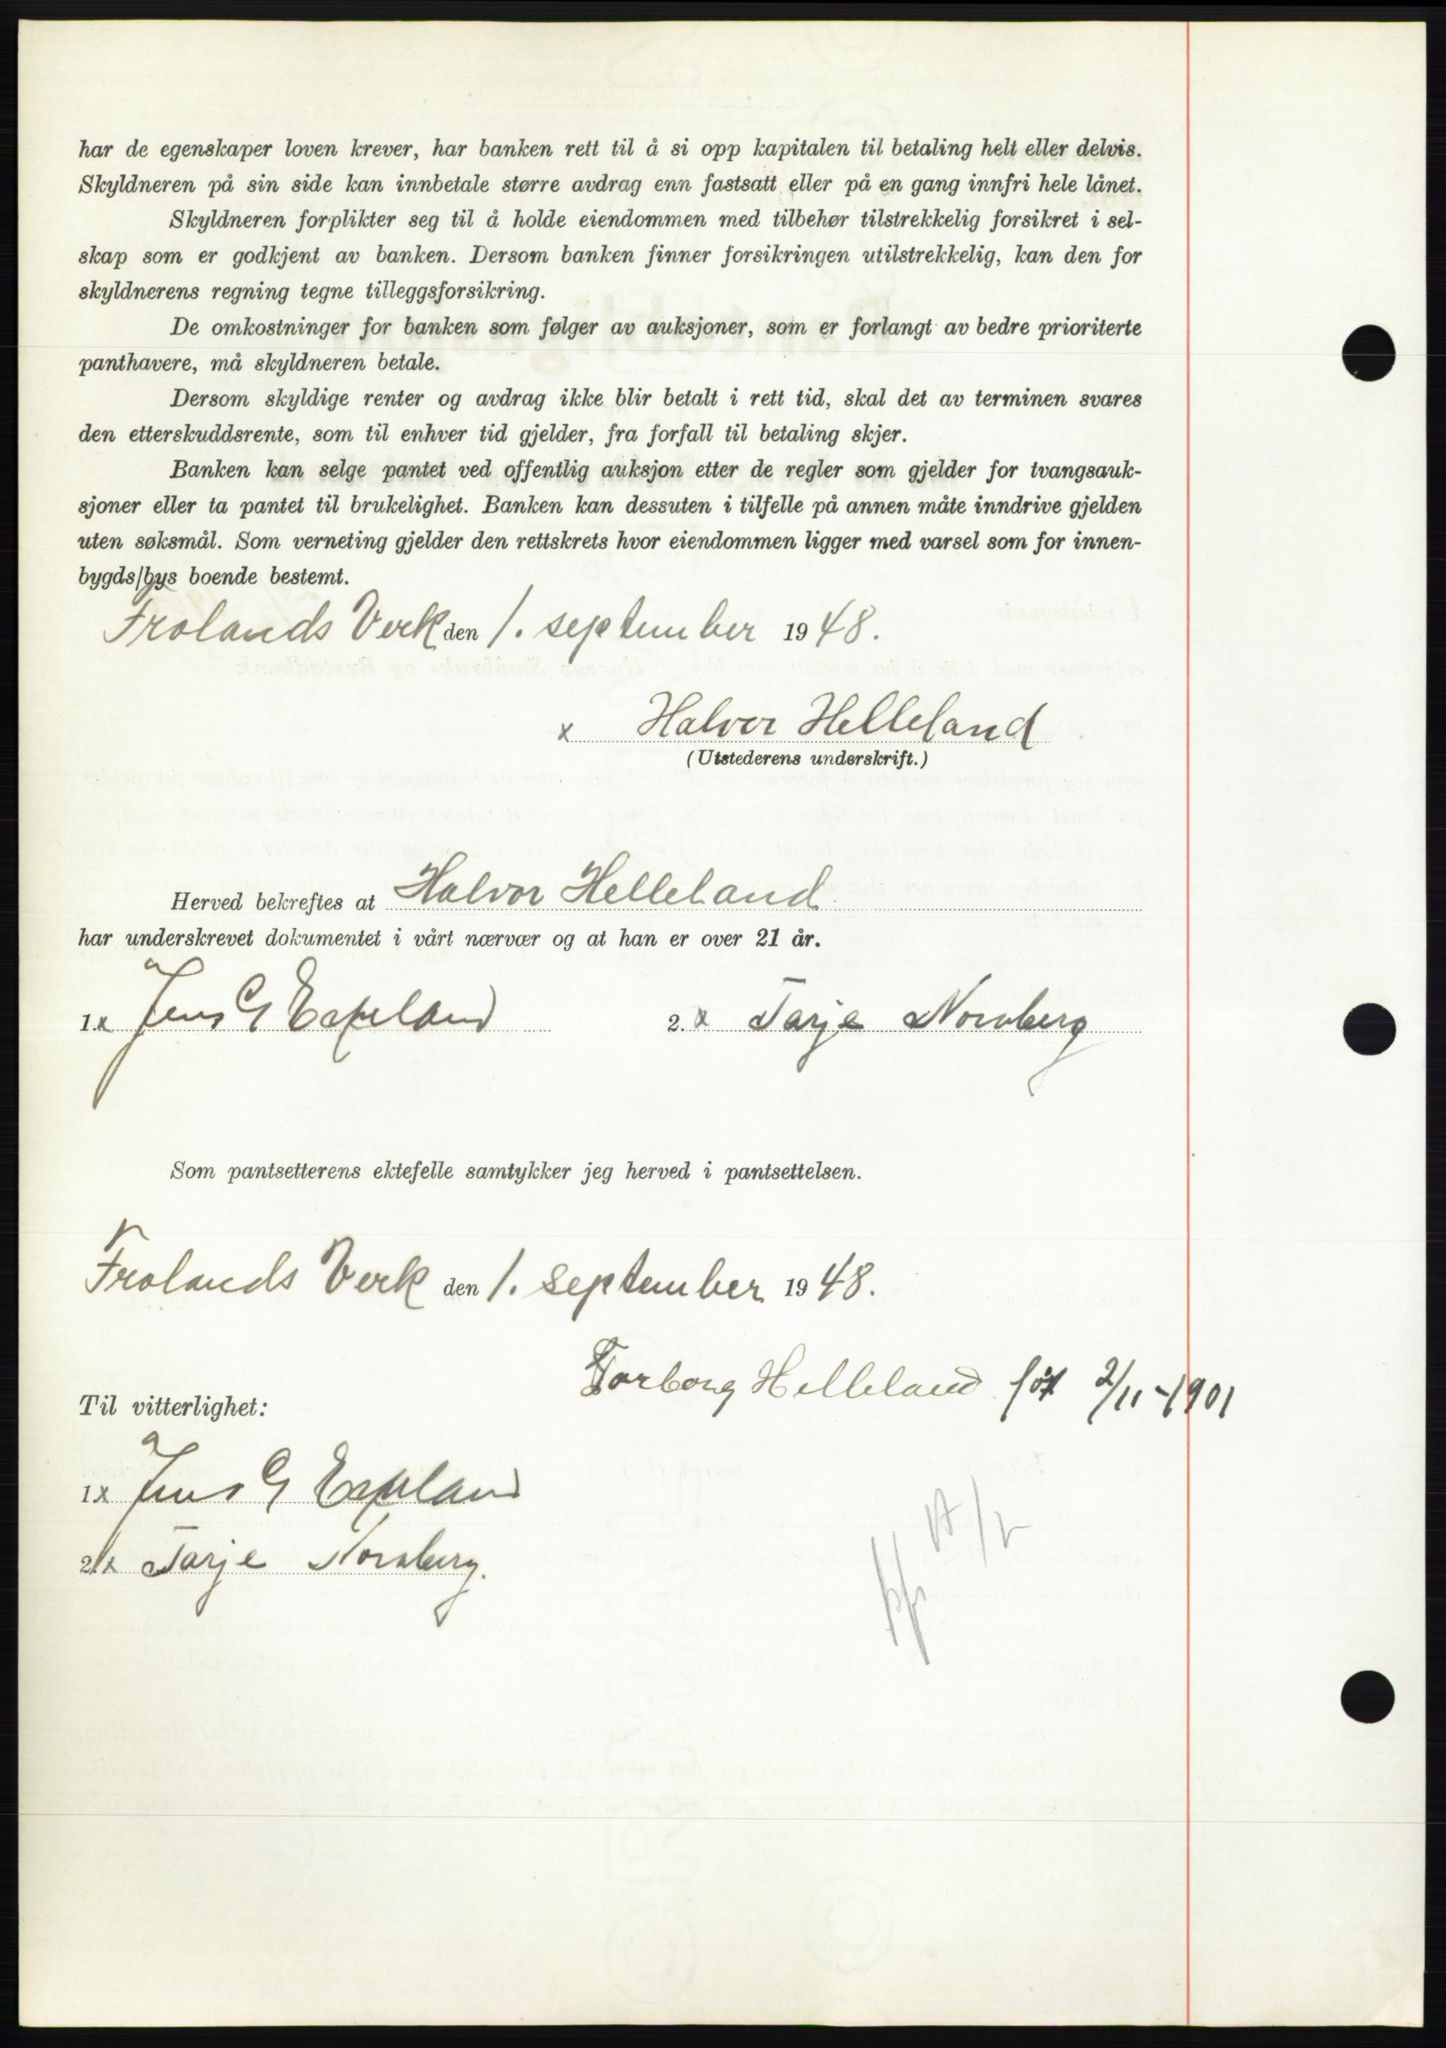 har de egenskaper loven krever, har banken rett til å si opp kapitalen til betaling helt eller delvis.
Skyldneren på sin side kan innbetale større avdrag enn fastsatt eller på en gang innfri hele lånet.
Skyldneren forplikter seg til å holde eiendommen med tilbehør tilstrekkelig forsikret i sel-
skap som er godkjent av banken. Dersom banken finner forsikringen utilstrekkelig, kan den for
skyldnerens regning tegne tilleggsforsikring.
De omkostninger for banken som følger av auksjoner, som er forlangt av bedre prioriterte
panthavere, må skyldneren betale.
Dersom skyldige renter og avdrag ikke blir betalt i rett tid, skal det av terminen svares
den etterskuddsrente, som til enhver tid gjelder, fra forfall til betaling skjer.
Banken kan selge pantet ved offentlig auksjon etter de regler som gjelder for tvangsauk-
sjoner eller ta pantet til brukelighet. Banken kan dessuten i tilfelle på annen måte inndrive gjelden
uten søksmål. Som verneting gjelder den rettskrets hvor eiendommen ligger med varsel som for innen-
bygds/bys boende bestemt.
Frolands Verk den 1. september 1948.
x Halvor Helleland
(Utstederens underskrift.)
Herved bekreftes at Halvor Helleland
har underskrevet dokumentet i vårt nærvær og at han er over 21 år.
1. x Jens G Espeland 2. x Tarje Nornberg
Som pantsetterens ektefelle samtykker jeg herved i pantsettelsen.
Frolands Verk den 1. september 1948.
Torborg Helleland føt 2/11-1901
Til vitterlighet:
1 x Jens G Espeland
2. x Tarje Nornberg.